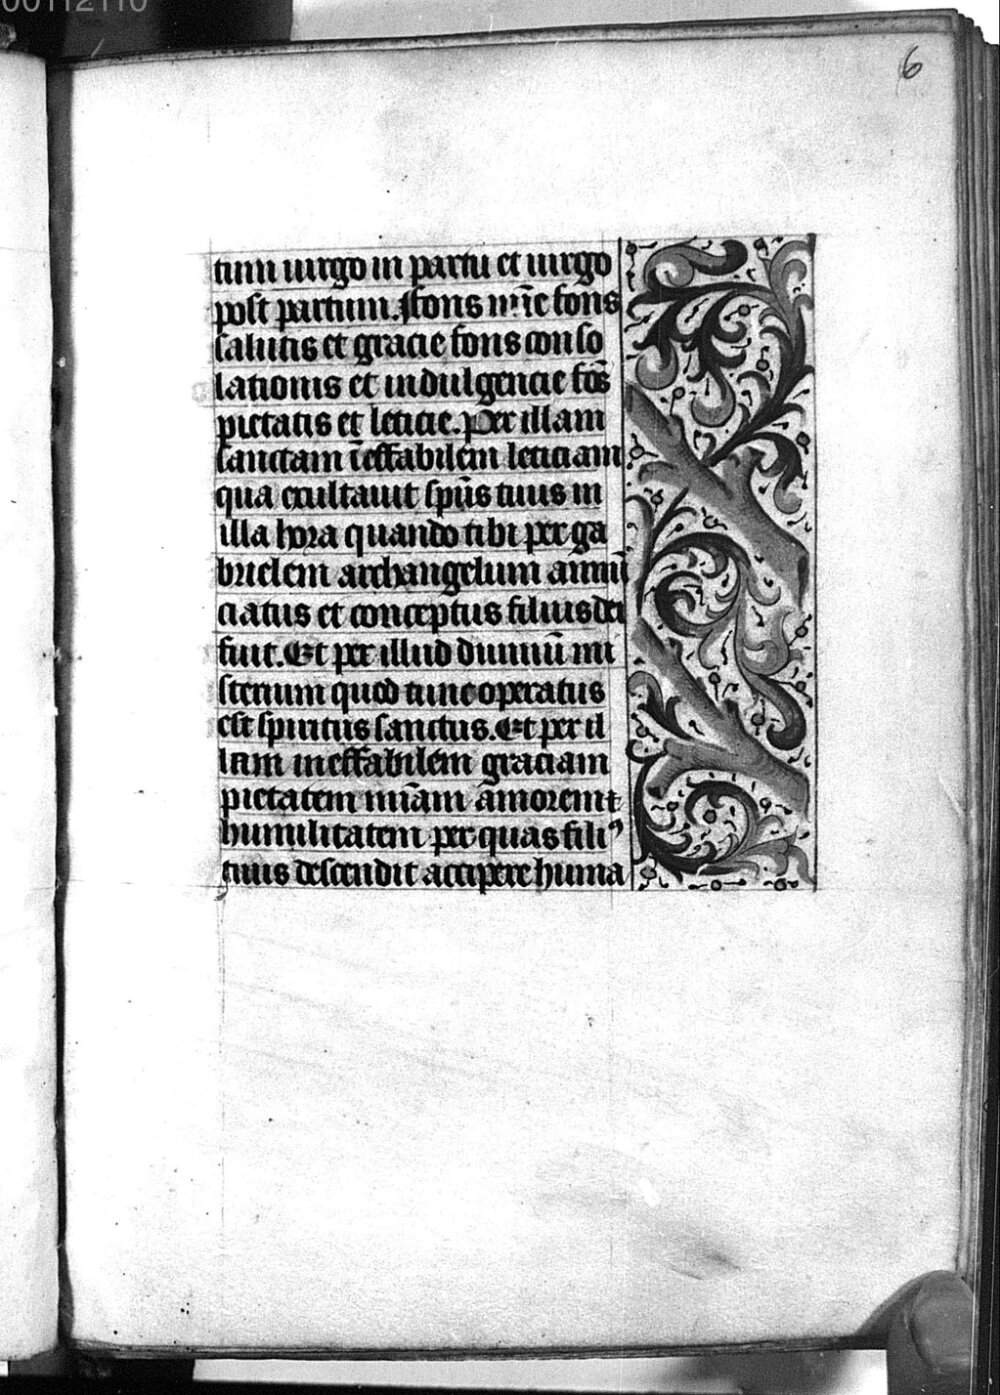 00112110
6
tum uirgo in partu et uirgo
post partum. ffons mīe fons
salutis et gracie fons conso
lationis et indulgencie fōs
pietatis et leticie. Per illam
sanctam īeffabilem leticiam
qua exultauit sp̄us tuus in
illa hora quando tibi per ga
brielem archangelum annū
ciatus et conceptus filius dei
fuit. Et per illud diuinū mi
sterium quod tunc operatus
est spiritus sanctus. Et per il
lam ineffabilem graciam
pietatem mīam amorem et
humilitatem per quas filiꝰ
tuus descendit accipere huma